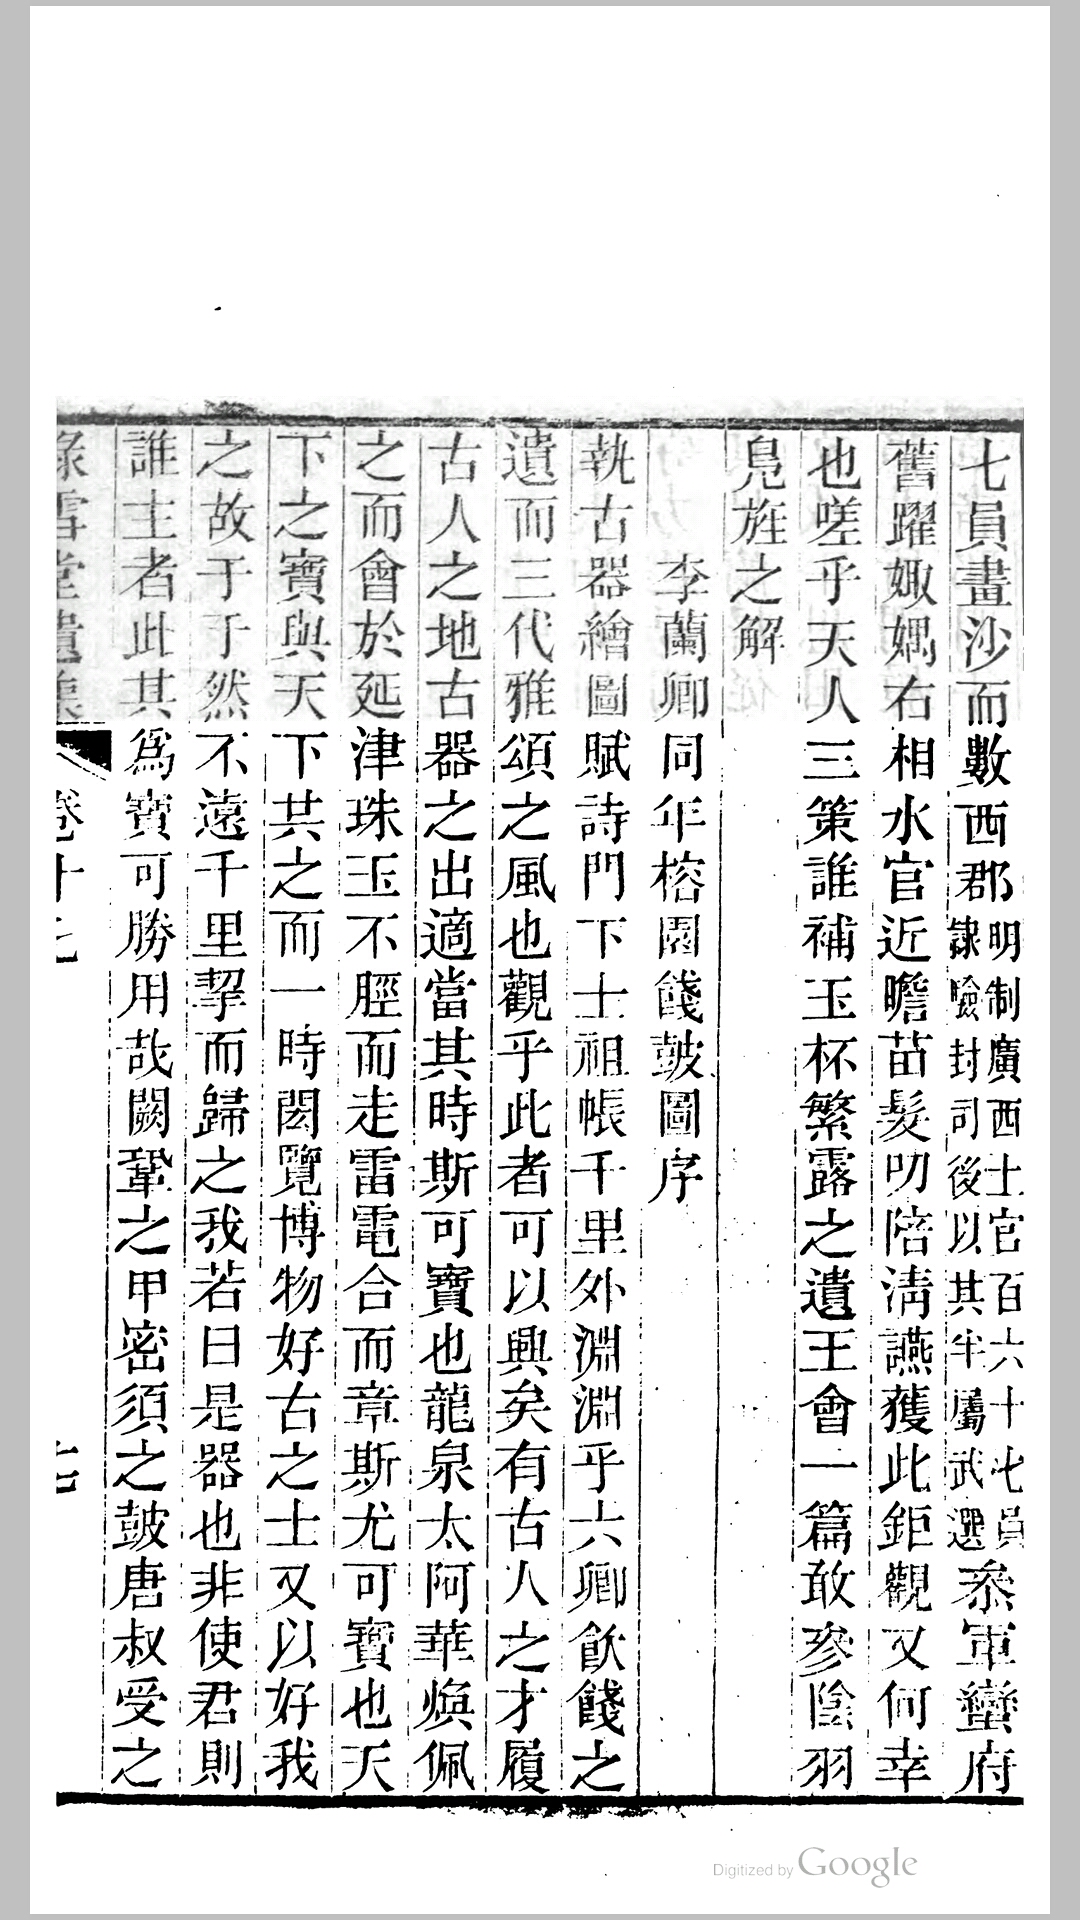 七員畫沙而數西郡明制廣西土官百六十七員隷驗封司後以其半屬武選叅軍蠻府
舊躍娵嵎右相水官近瞻苗髮叨陪淸讌獲此鉅觀又何幸
也嗟乎天人三策誰補玉杯繁露之遺王會一篇敢參陰羽
鳧旌之解
李蘭卿同年榕園餞鼓圖序
執古器繪圖賦詩門下士祖帳千里外淵淵乎六卿飮餞之
遺而三代雅頌之風也觀乎此者可以興矣有古人之才履
古人之地古器之出適當其時斯可寶也龍泉太阿華煥佩
之而會於延津珠玉不脛而走雷電合而章斯尤可寶也天
下之寶與天下共之而一時閎覽博物好古之士又以好我
之故于于然不遠千里挈而歸之我若曰是器也非使君則
誰主者此其爲寶可勝用哉闕鞏之甲密須之鼓唐叔受之
綠雪堂遺集 卷十七 七
Digitized by Google